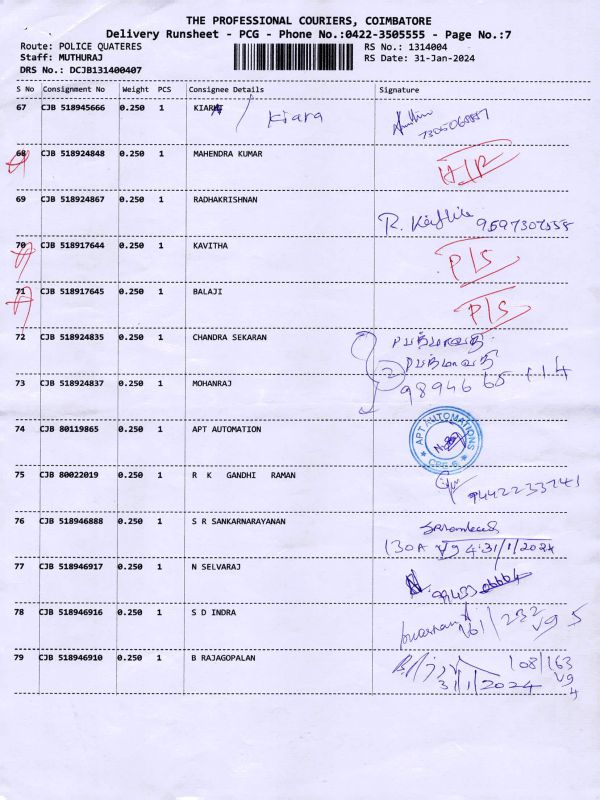 THE PROFESSIONAL COURIERS, COIMBATORE
Delivery Runsheet - PCG - Phone No.:0422-3505555 - Page No.:7
Route: POLICE QUATERES RS No.: 1314004
Staff: MUTHURAJ RS Date: 31-Jan-2024
DRS No.: DCJB131400407
S No Consignment No Weight PCS Consignee Details Signature
67 CJB 518945666 0.250 1 Kiara
68 CJB 518924848 0.250 1 MAHENDRA KUMAR
69 CJB 518924867 0.250 1 RADHAKRISHNAN R.
70 CJB 518917644 0.250 1 KAVITHA P/S
71 CJB 518917645 0.250 1 BALAJI P/S
72 CJB 518924835 0.250 1 CHANDRA SEKARAN
73 CJB 518924837 0.250 1 MOHANRAJ 2
74 CJB 80119865 0.250 1 APT AUTOMATION APT AUTOMATIONS
75 CJB 80022019 0.250 1 R K GANDHI RAMAN 9442233241
76 CJB 518946888 0.250 1 S R SANKARNARAYANAN
130A V9 4. 31/1/2024
77 CJB 518946917 0.250 1 N SELVARAJ
78 CJB 518946916 0.250 1 S D INDRA 161/232 V9 5
79 CJB 518946910 0.250 1 B RAJAGOPALAN 108/163
31/1/2024 V9 4